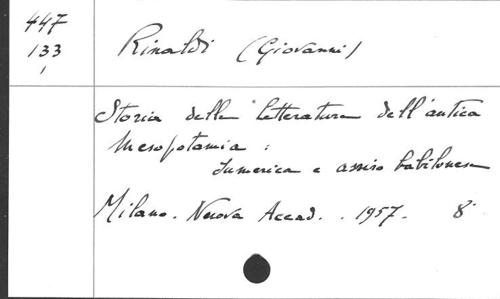 447
133
Rinaldi (Giovanni)
Storia delle letterature dell'antica
Mesopotamia :
Sumerica e assiro babilonese
Milano. Nuova Accad. . 1957. 8°